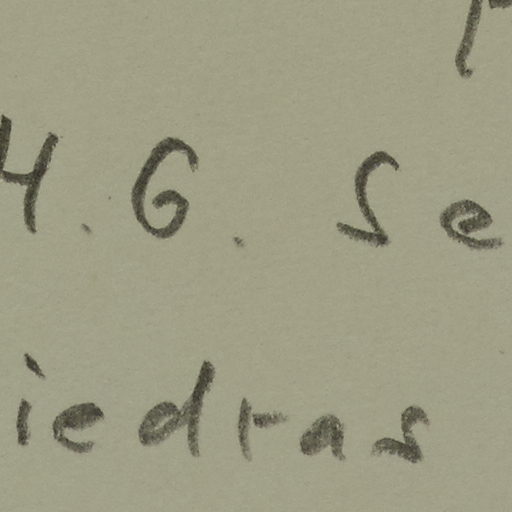 H. G. Se
iedras